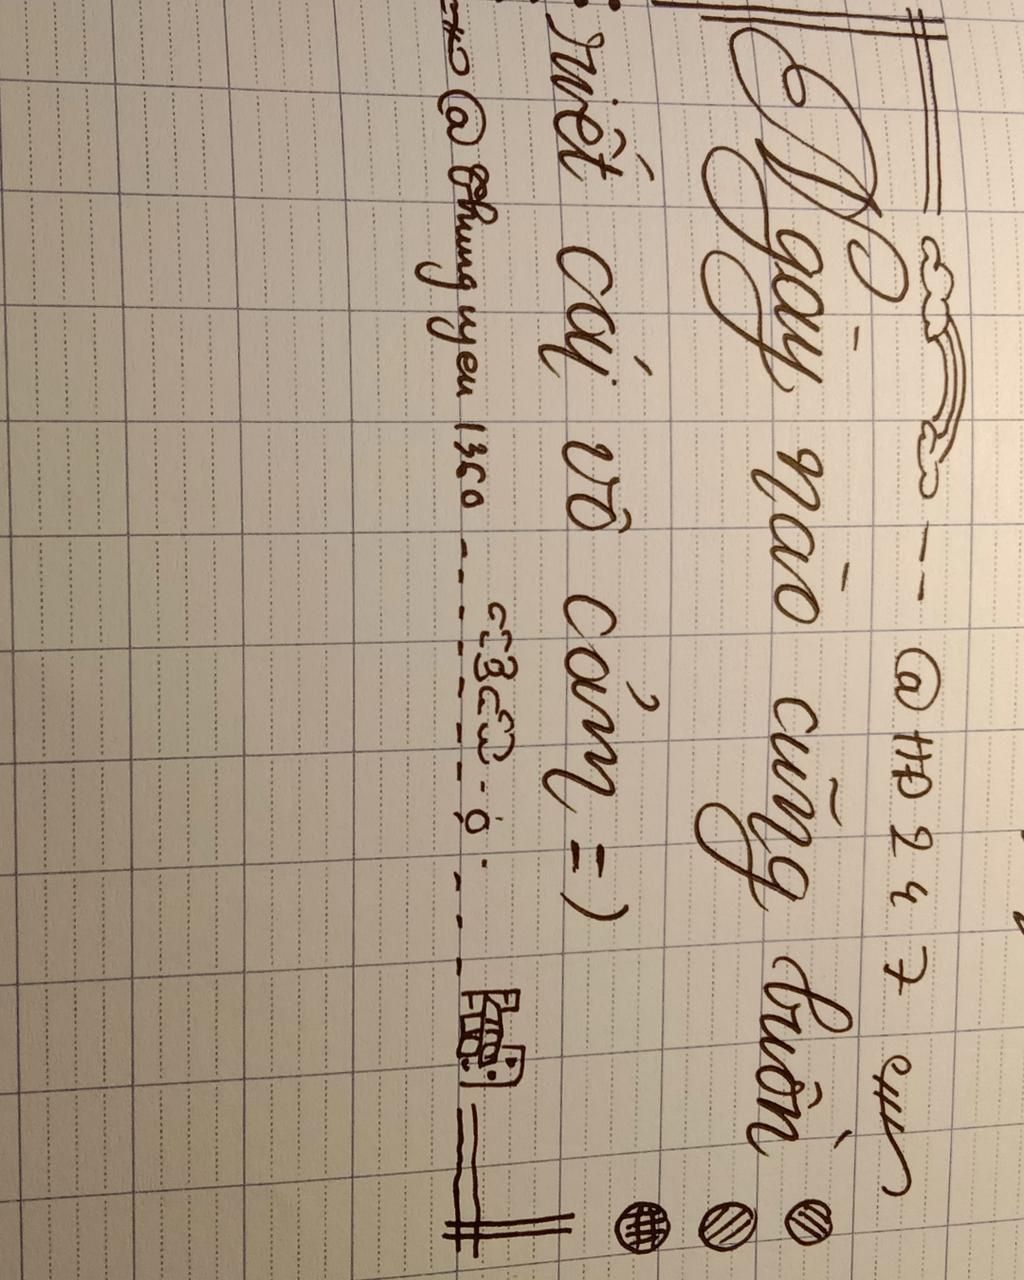 @HĐ247
Ngày nào cũng buồn
riết cái vô cảm =)
@Phunguyen1360